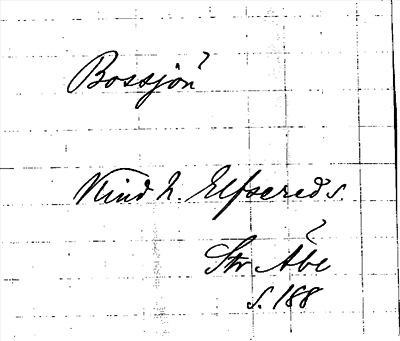 Bossjön
Kind h. Elfsereds s.
Str Åbe
s. 188